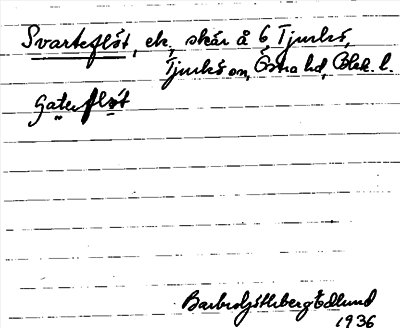 Svarteflöt, ek, skär å 6 Tjurkö,
Tjurkö sn, Östra hd, Blek. l.
Gateflöt
Barbro Söderberg Edlund
1936